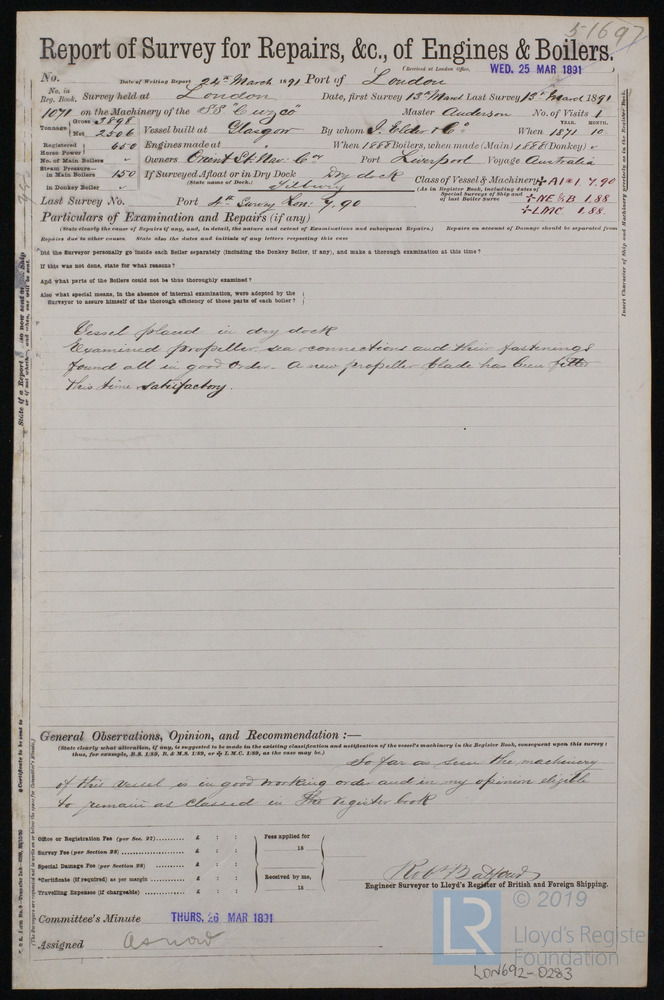 51697
Report of Survey for Repairs, &c., of Engines & Boilers.
(Received at London Office, WED. 25 MAR 1891)
No. Date of Writing Report 24th March 1891 Port of London
No. in Reg. Book. Survey held at London Date, first Survey 13th March Last Survey 13th March 1891
1071 on the Machinery of the "SS "Cuzco" Master Anderson No. of Visits 1
Tonnage Gross 3898 Net 2506 Vessel built at Glasgow By whom J. Elder & Co When 1871 YEAR. MONTH. 10
Registered Horse Power 650 Engines made at " When 1888 Boilers, when made (Main) 1888 (Donkey) "
No. of Main Boilers " Owners Orient St. Nav. Coy Port Liverpool Voyage Australia
Steam Pressure— in Main Boilers 150 If Surveyed Afloat or in Dry Dock Dry dock
(State name of Dock.) Tilbury
in Donkey Boiler "
Class of Vessel & Machinery ✠A1 7.90
(As in Register Book, including dates of Special Surveys of Ship and of last Boiler Surve ✠NE&B 1.88
✠LMC 1.88
Last Survey No. Port 4th Survey Lon: 7.90
Particulars of Examination and Repairs (if any)
(State clearly the cause of Repairs if any, and, in detail, the nature and extent of Examinations and subsequent Repairs.) Repairs on account of Damage should be separated from
Repairs due to other causes. State also the dates and initials of any letters respecting this case
Did the Surveyor personally go inside each Boiler separately (including the Donkey Boiler, if any), and make a thorough examination at this time?
If this was not done, state for what reasons?
And what parts of the Boilers could not be thus thoroughly examined?
Also what special means, in the absence of internal examination, were adopted by the
Surveyor to assure himself of the thorough efficiency of those parts of each boiler?
Vessel placed in dry dock
Examined propeller sea connections and their fastenings
found all in good order. A new propeller blade has been fitted
this time satisfactory.
General Observations, Opinion, and Recommendation :—
(State clearly what alteration, if any, is suggested to be made in the existing classification and notification of the vessel's machinery in the Register Book, consequent upon this survey:
thus, for example, B.S. 1/89, B. & M.S. 1/89, or ✠ L.M.C. 1/89, as the case may be.)
So far as seen the machinery
of this vessel is in good working order and in my opinion eligible
to remain as classed in the register book
Office or Registration Fee (per Sec. 27) £ : :
Survey Fee (per Section 28) £ : :
Special Damage Fee (per Section 28) £ : :
*Certificate (if required) as per margin £ : :
Travelling Expenses (if chargeable) £ : :
Fees applied for
18
Received by me,
18
Robt Balfour
Engineer Surveyor to Lloyd's Register of British and Foreign Shipping.
Committee's Minute THURS. 26 MAR 1891
Assigned as now
LR © 2019
Lloyd's Registe
Foundation
LON692-0283
Insert Character of Ship and Machinery precisely as in the Register Book.